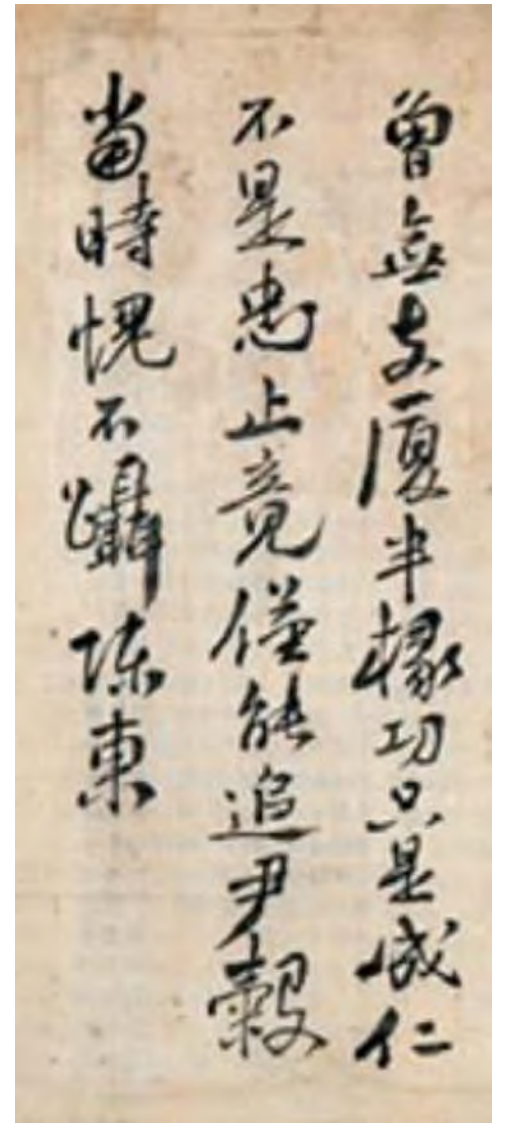 曾無支厦半椽功只是成仁
不是忠止竟僅能追尹穀
當時愧不躡陳東